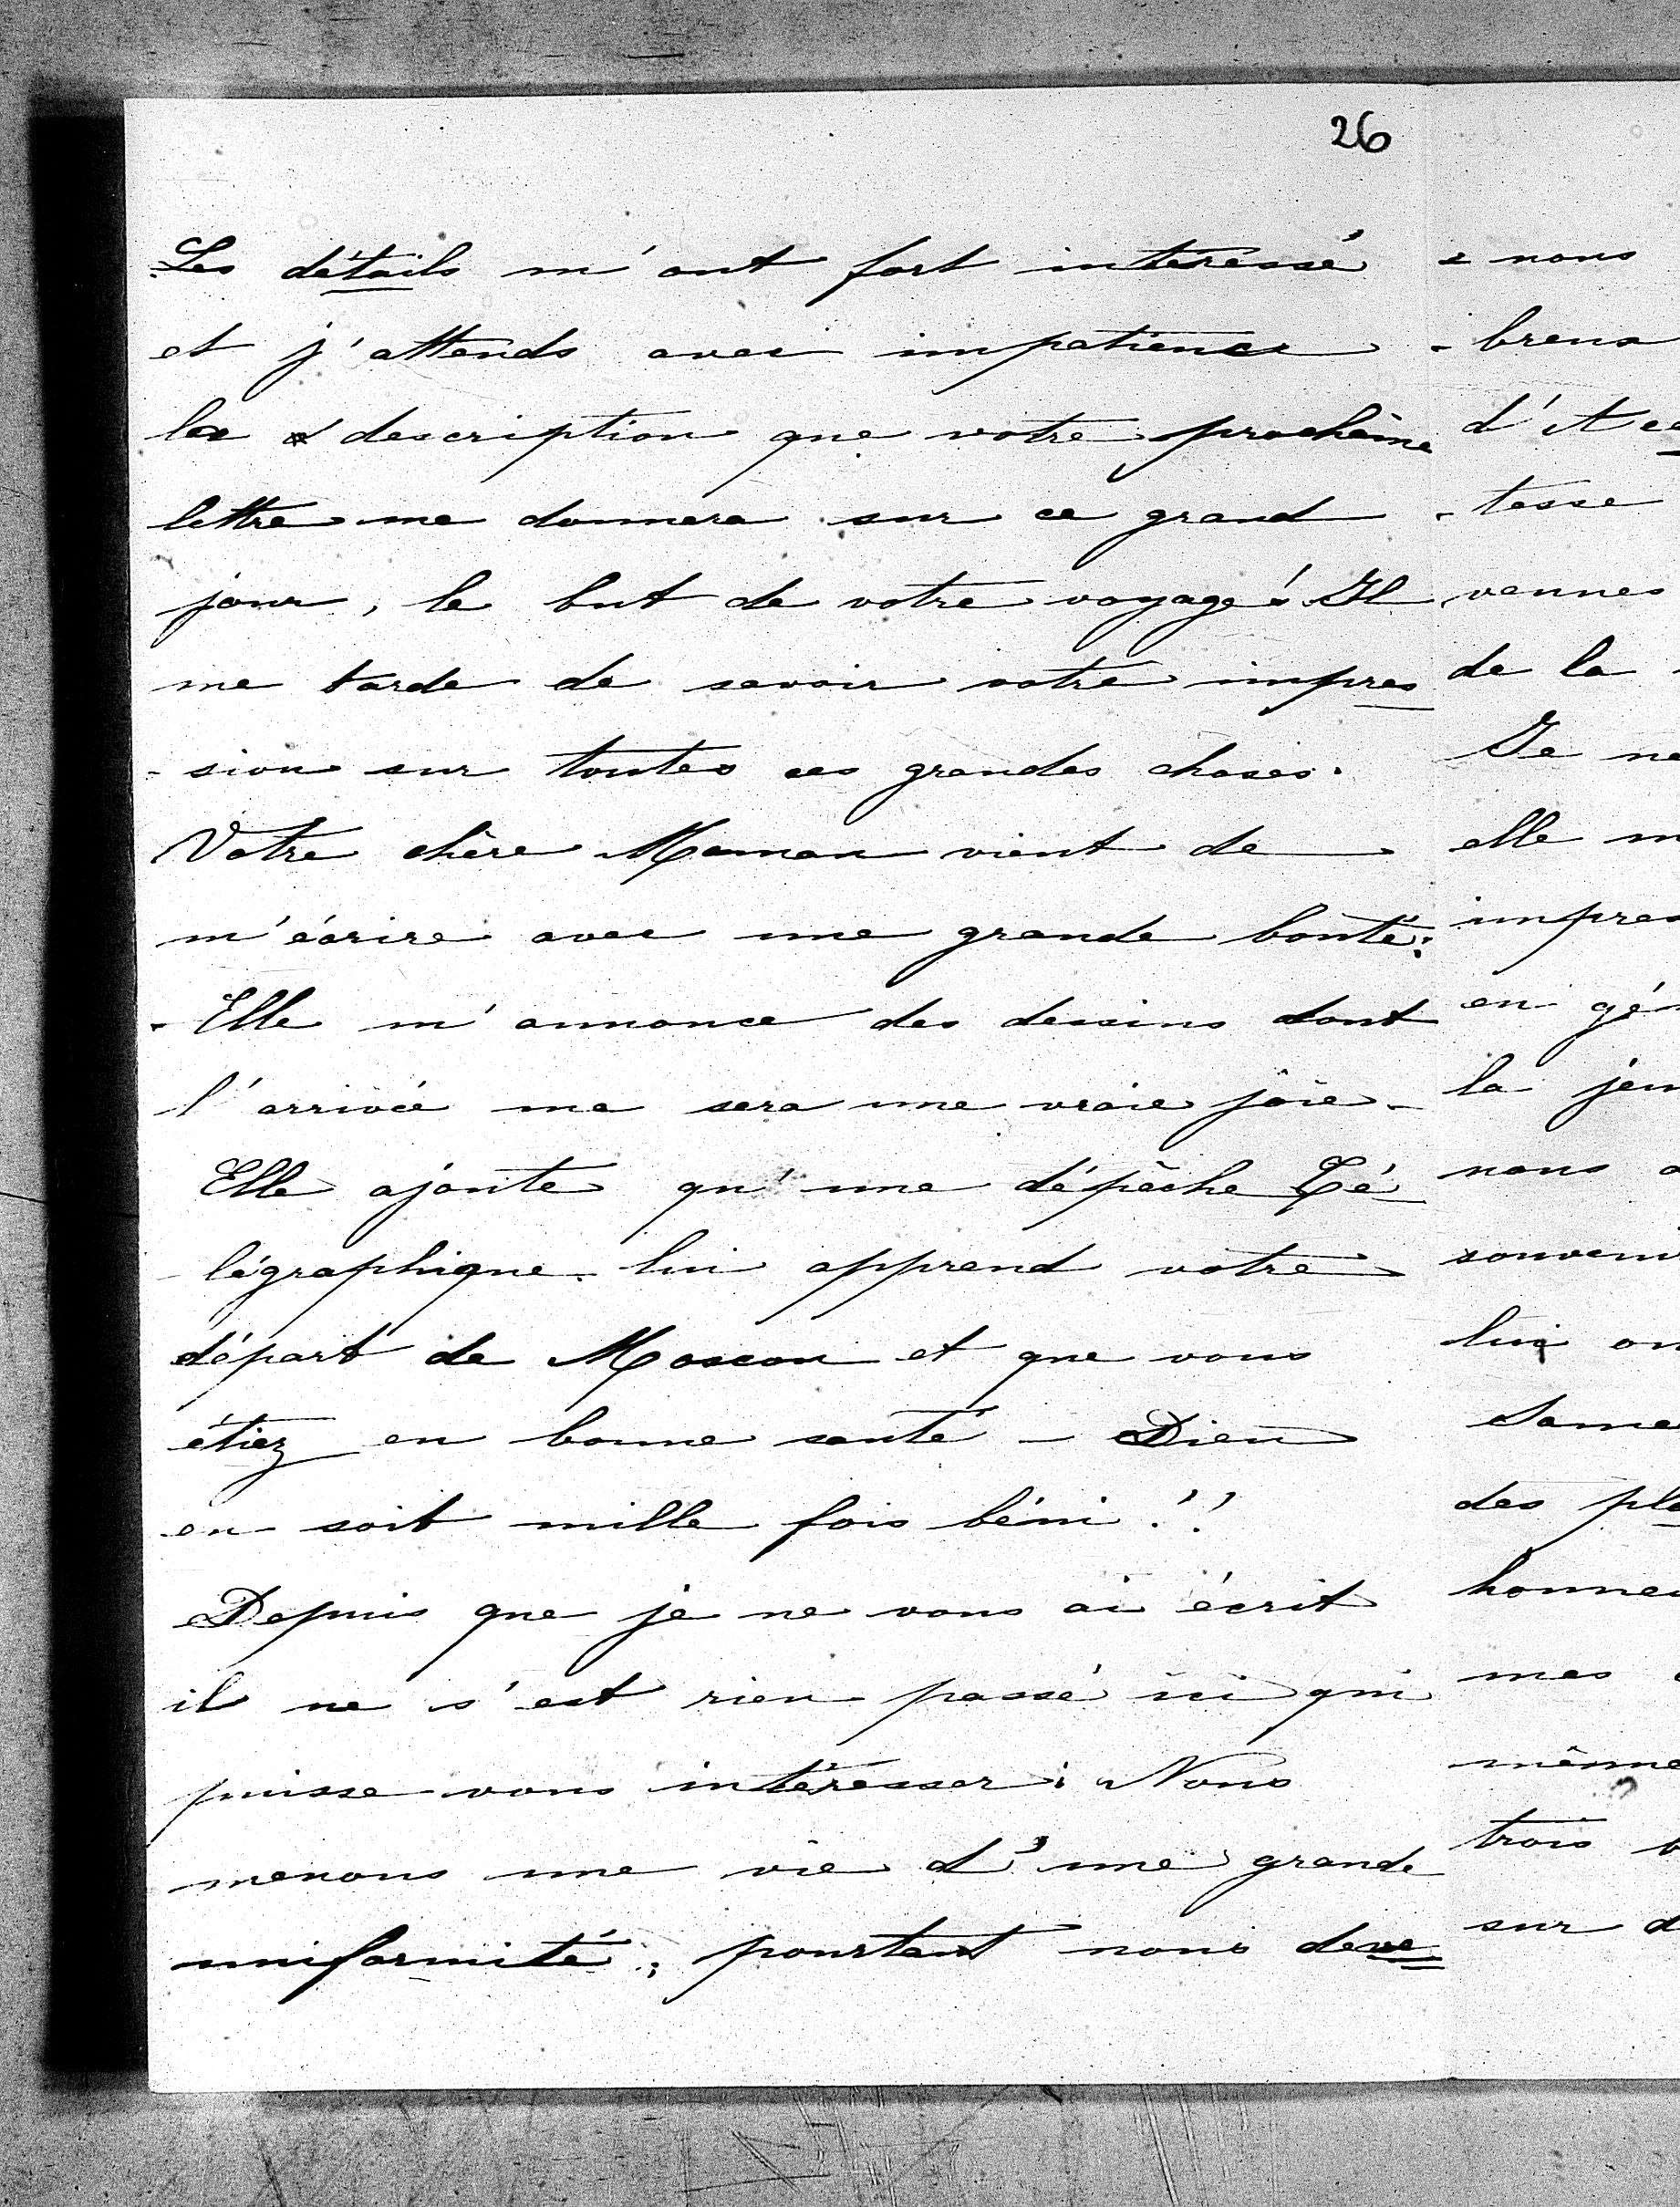 26
Les détails m'ont fort intéressé
et j'attends avec impatience
la description que votre prochaine
lettre me donnera sur ce grand
jour, le but de votre voyage! Il
me tarde de savoir votre impres
-sion sur toutes ces grandes choses.
Votre chère Maman vient de
m'écrire avec une grande bonté:
-Elle m'annonce des dessins dont
l'arrivée me sera une vraie joie-
Elle ajoute qu'une dépêche Té
-légraphique lui apprend votre
départ de Moscou et que vous
étiez en bonne santé - Dieu
en soit mille fois béni!!
Depuis que je ne vous ai écrit
il ne s'est rien passé ici qui
puisse vous intéresser: Nous
menons une vie d'une grande
uniformité; pourtant nous deve
-nons
-breux
-tesse
vennes
de la
Je ne
elle m
impres
en gén
la jeu
nous a
souveni
lui on
Same
des pla
honneu
mes
même
trois
sur d